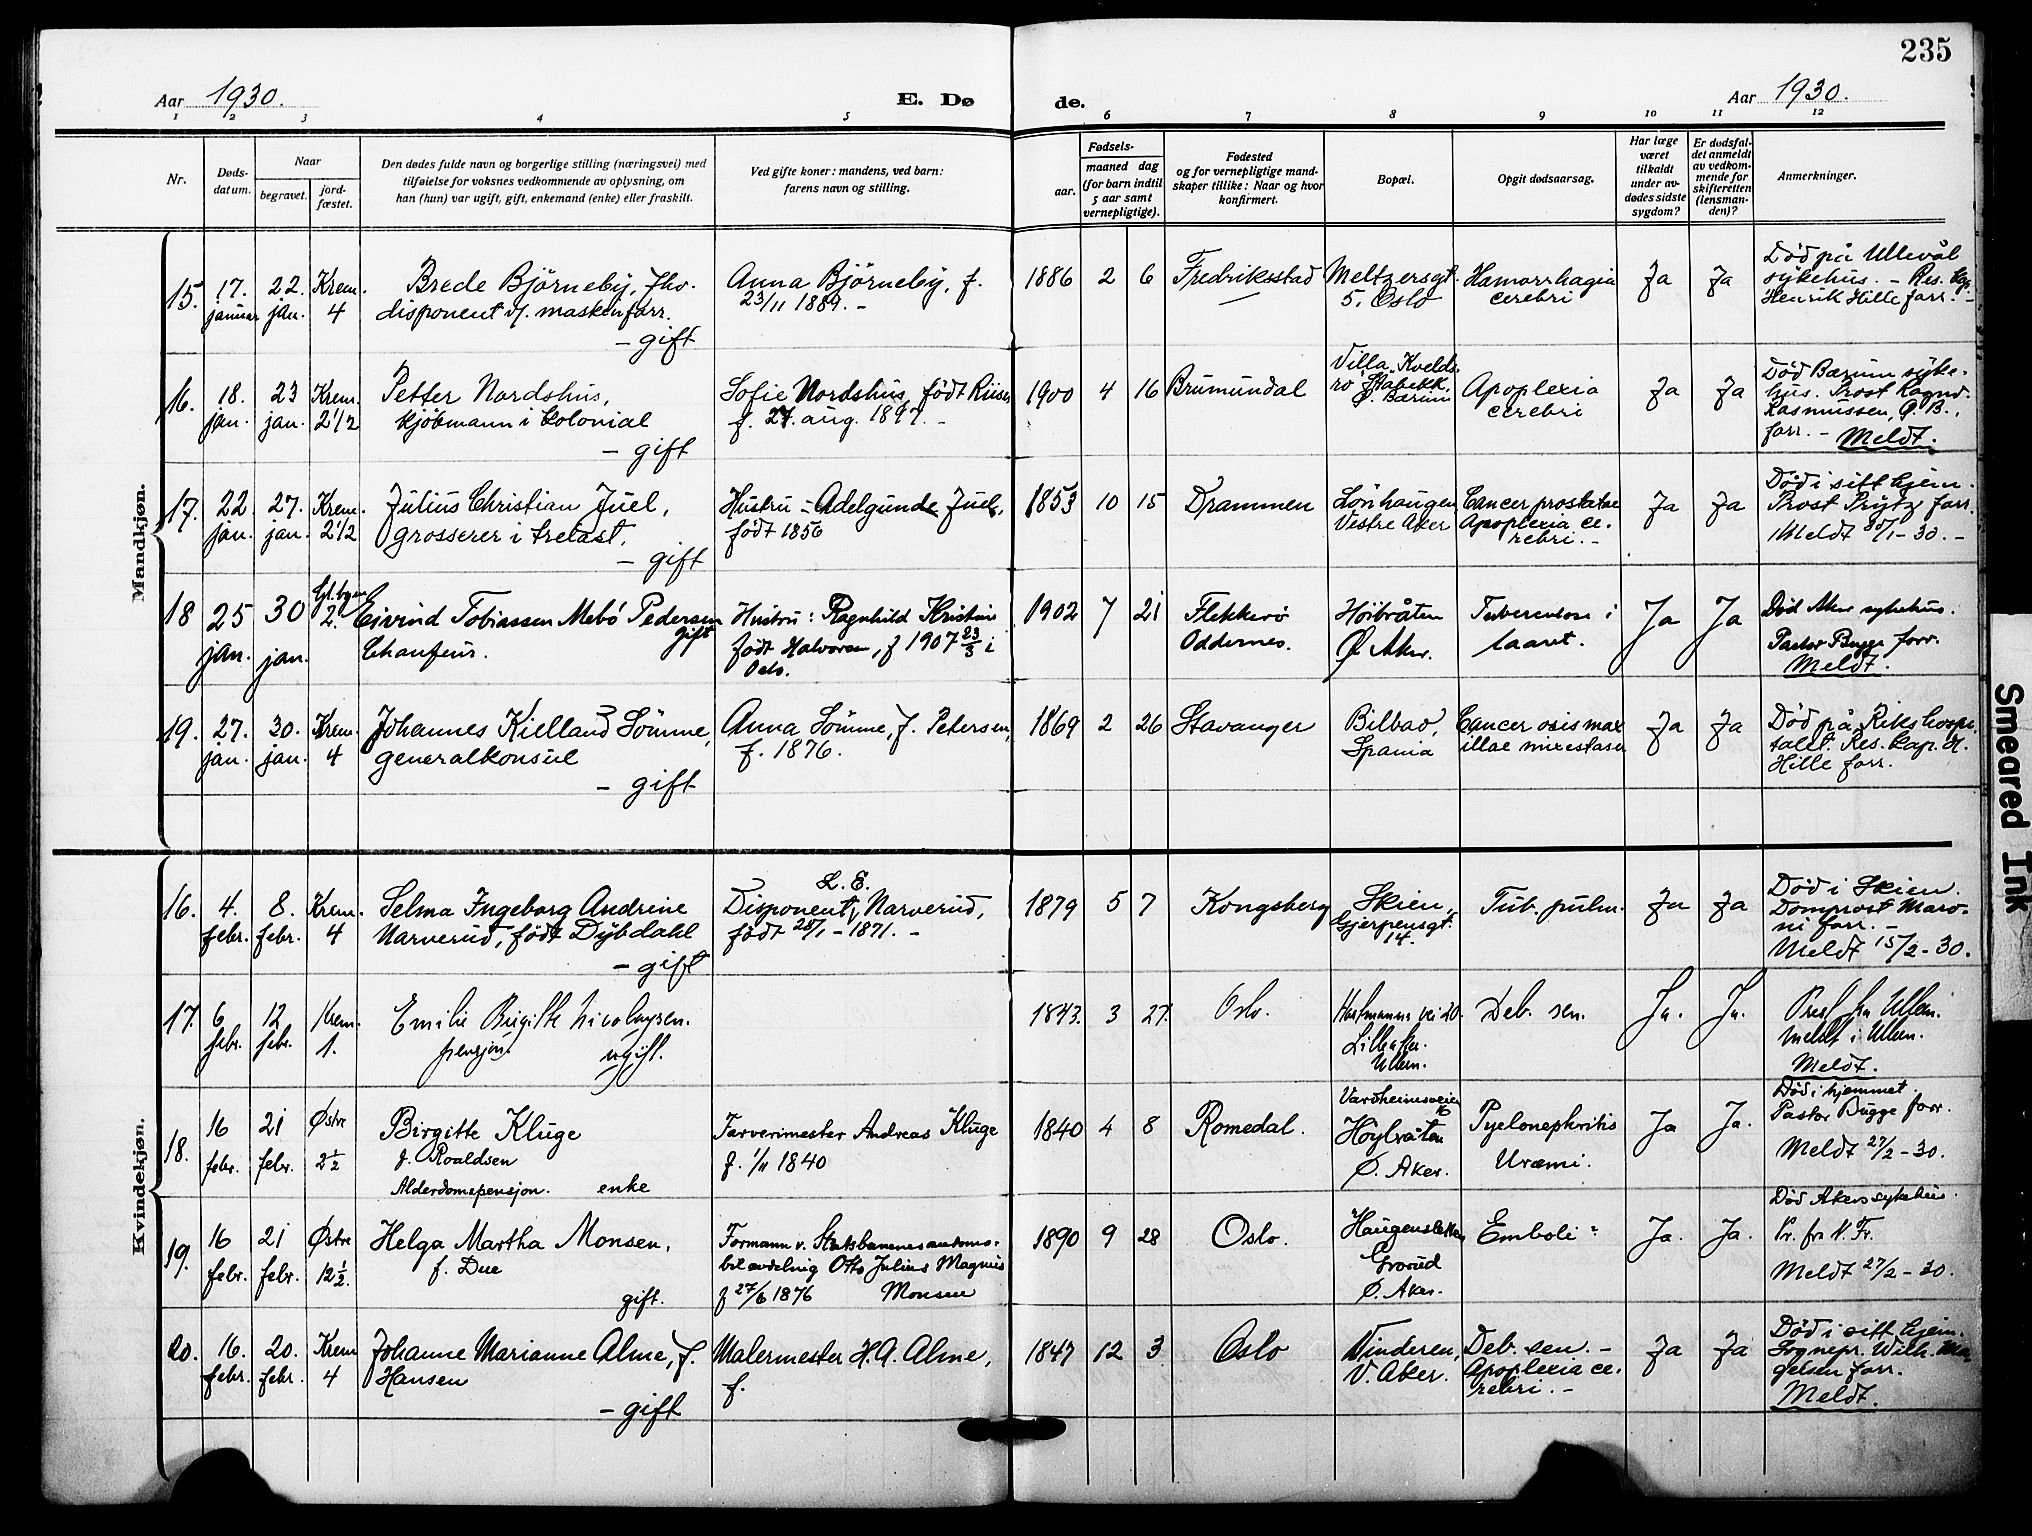 235
Aar 1930.
E. Dø
de.
Aar 1930.
1 2 3 4 5 6 7 8 9 10 11 12
Nr.
Døds-
datum.
Naar
begravet.
jord-
fæstet.
Den dødes fulde navn og borgerlige stilling (næringsvei) med
tilføielse for voksnes vedkommende av oplysning, om
han (hun) var ugift, gift, enkemand (enke) eller fraskilt.
Ved gifte koner: mandens, ved barn:
farens navn og stilling.
Fødsels-
aar.
maaned dag
(for barn indtil
5 aar samt
vernepligtige).
Fødested
og for vernepligtige mand-
skaper tillike: Naar og hvor
konfirmert.
Bopæl.
Opgit dødsaarsag.
Har læge
været
tilkaldt
under av-
dødes sidste
sygdom?
Er dødsfal-
det anmeldt
av vedkom-
mende for
skifteretten
(lensman-
den)?
Anmerkninger.
Mandkjøn.
15. 17. januar 22. jan. Krem. 4
Brede Björneby,
disponent v/. maskinforr.
- gift
Anna Björneby, f.
23/11 1889. -
1886 2 6 Fredriksstad
Meltzersgt.
5, Oslo
Hæmorrhagia
cerebri
Ja Ja
Död på Ullevål
sykehus. - Res. kap.
Henrik Hille forr. -
16. 18. jan. 23 jan. Krem. 2 1/2
Petter Nordshus,
kjöbmann i Colonial
- gift
Sofie Nordshus, født Riiser
f. 27. aug. 1897. -
1900 4 16 Brumundal
Villa Kvelds-
ro Stabekk,
Ø. Bærum
Apoplexia
cerebri
Ja Ja
Död Bærum syke-
hus. Prost Ragnv.
Rasmussen, Ø. B.,
forr. - Meldt.
17. 22 jan. 27. jan. Krem. 2 1/2
Julius Christian Juel,
grosserer i trelast.
- gift
Hustru - Adelgunde Juel,
født 1856
1853 10 15 Drammen
Lönhaugen
Vestre Aker
Cancer prostatae
Apoplexia ce-
rebri. -
Ja Ja
Död i sitt hjem.
Prost Prytz forr.
Meldt 30/1-30. -
18 25 jan. 30 jan. Gl. byen 2.
Eivind Tobiassen Mebö Pedersen
gift
Chauffeur.
Hustru: Ragnhild Kristine
født Halvorsen, f 1907 23/3 i
Oslo.
1902 7 21 Flekkerö
Oddernes.
Höibråten
Ø. Aker.
Tuberculose i
laaret.
Ja Ja
Död Aker sykehus.
Pastor Bugge forr.
Meldt.
19. 27. jan. 30. jan. Krem. 4
Johannes Kielland Sömme,
generalkonsul
- gift
Anna Sömme, f. Petersen,
f. 1876.
1869 2 26 Stavanger
Bilbao,
Spania
Cancer osis max
illae
Ja Ja
Död på Rikshospi-
talet. Res. kap. H.
Hille forr.
Kvindekjøn.
16. 4. febr. 8. febr. Krem. 4
Selma Ingeborg Andrine
Narverud, født Dybdahl
- gift
L. E.
Disponent, Narverud,
født 28/1-1871. -
1879 5 7 Kongsberg
Skien,
Gjerpensgt.
14.
Tub. pulm.
Ja Ja
Död i Skien.
Domprost Maro-
ni forr. -
Meldt 15/2-30.
17. 6 febr. 12 febr. Krem. 1.
Emilie Birgitte Nicolaysen.
pensjon. ugift.
1843. 3 27. Oslo.
Hoffmanns vei 20.
Lilleaker.
Ullern.
Deb. sen.
Ja. Ja.
Prest fra Ullern.
meldt i Ullern.
Meldt.
18. 16 febr. 21 febr. Østre 2 1/2
Birgitte Kluge
f. Roaldsen
Alderdomspensjon. enke
Farverimester Andreas Kluge
f. 1/11 1840
1840 4 8 Romedal.
Vardheimsveien
16
Höybråten
Ø. Aker.
Pyelonephritis
Uræmi.
Ja Ja.
Död i hjemmet.
Pastor Bugge forr.
Meldt 27/2-30.
19. 16 febr. 21 febr. Østre 12 1/2.
Helga Martha Monsen,
f. Due
gift.
Formann v. Statsbanenes automo-
bil avdelnig Otto Julius Magnus
f 27/6 1876 Monsen
1890 9 28 Oslo.
Haugensløkken
Grorud
Ø. Aker.
Emboli
Ja. Ja.
Död Akers sykehus.
Pr. fr. V. Fr.
Meldt 27/2-30.
20. 16. febr. 20. febr. Krem 4
Johanne Marianne Alme, f.
Hansen
- gift
Malermester H. A. Alme,
f.
1847 12 3 Oslo
Vinderen,
V. Aker.
Deb. sen. -
Apoplexia ce-
rebri. -
Ja Ja
Död i sitt hjem.
Sognepr. Wilh. Ma-
gelsen forr.
Meldt.
Smeared Ink